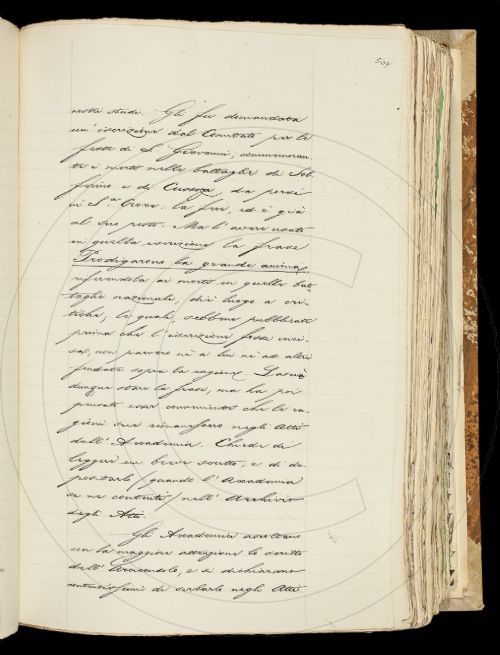 509
nostri studi. Gli fu domandata
un iscrizione dal Comitato per le
feste di S. Giovanni, commemoran-
te i morti nelle battaglie di Sol-
ferino e di Custoza, da porsi
in S.a Croce. La fece, ed è già
al suo posto. Ma l'avere usato
in quella iscrizione la frase
Prodigarono la grande anima,
riferendola ai morti in quelle bat-
taglie nazionali, diè luogo a cri-
tiche; le quali, sebbene pubblicate
prima che l'iscrizione fosse inci-
sa, non parvero nè a lui nè ad altri
fondate sopra la ragione. Lasciò
dunque stare la frase, ma ha poi
pensato esser conveniente che le ra-
gioni sue rimanessero negli Atti
dell'Accademia. Chiede di
leggere un breve scritto, e di de-
positarlo (quando l'Accademia
se ne contenti) nell'Archivio
degli Atti.
Gli Accademici ascoltano
con la maggiore attenzione lo scritto
dell', e si dichiarano
contentissimi di serbarlo negli Atti